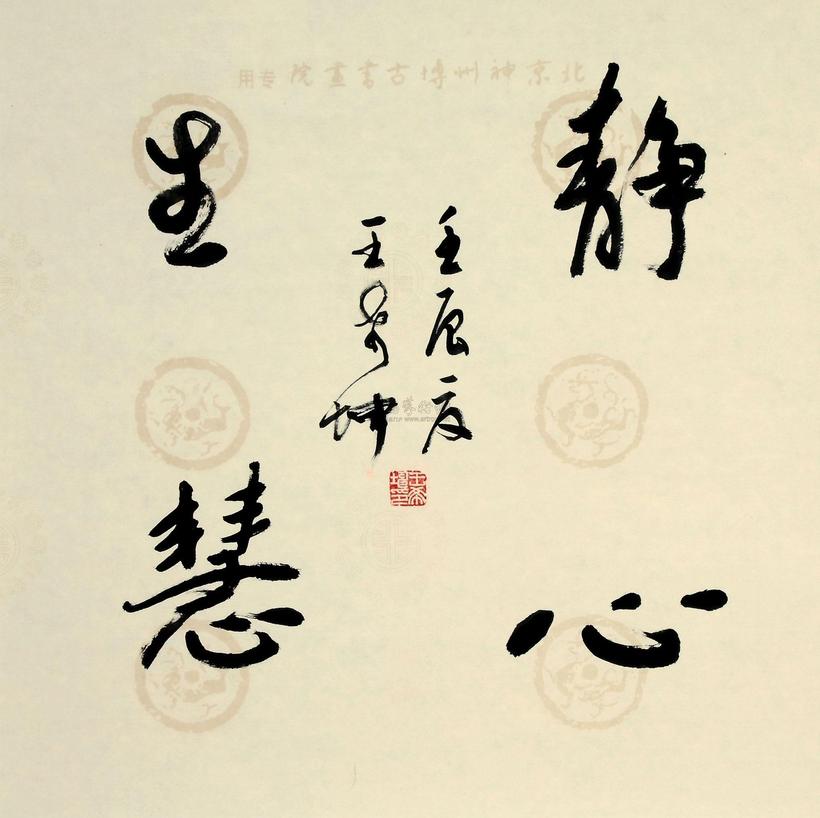 北京神州博古書畫院专用
静心
生慧
壬辰夏
王
坤